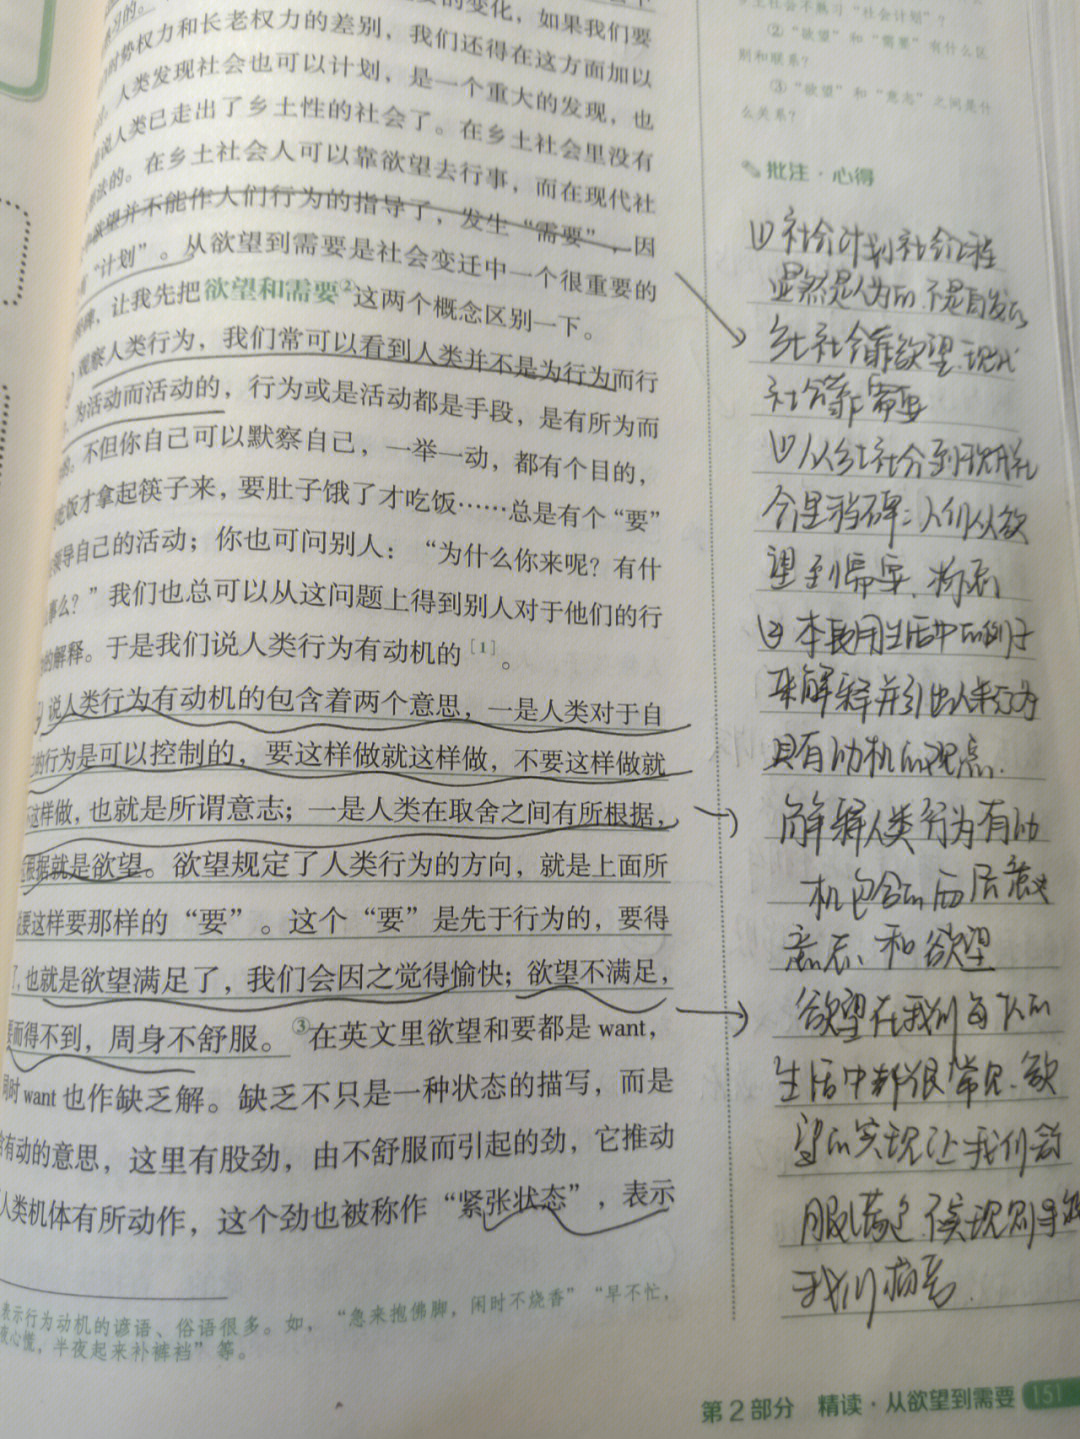 的变化，如果我们要
时势权力和长老权力的差别，我们还得在这方面加以
人类发现社会也可以计划，是一个重大的发现，也
说人类已走出了乡土性的社会了。在乡土社会里没有
法的。在乡土社会人可以靠欲望去行事，而在现代社
欲望并不能作人们行为的指导了，发生“需要”，因
“计划”。从欲望到需要是社会变迁中一个很重要的
，让我先把欲望和需要②这两个概念区别一下。
观察人类行为，我们常可以看到人类并不是为行为而行
为活动而活动的，行为或是活动都是手段，是有所为而
不但你自己可以默察自己，一举一动，都有个目的，
吃饭才拿起筷子来，要肚子饿了才吃饭……总是有个“要”
领导自己的活动；你也可问别人：“为什么你来呢？有什
么？”我们也总可以从这问题上得到别人对于他们的行
的解释。于是我们说人类行为有动机的[1]。
说人类行为有动机的包含着两个意思，一是人类对于自
的行为是可以控制的，要这样做就这样做，不要这样做就
不这样做，也就是所谓意志；一是人类在取舍之间有所根据，
根据就是欲望。欲望规定了人类行为的方向，就是上面所
要这样要那样的“要”。这个“要”是先于行为的，要得
了，也就是欲望满足了，我们会因之觉得愉快；欲望不满足，
要而得不到，周身不舒服。③在英文里欲望和要都是want，
同时want也作缺乏解。缺乏不只是一种状态的描写，而是
含有动的意思，这里有股劲，由不舒服而引起的劲，它推动
人类机体有所动作，这个劲也被称作“紧张状态”，表示
表示行为动机的谚语、俗语很多。如，“急来抱佛脚，闲时不烧香”“早不忙，
夜心慌，半夜起来补裤裆”等。
乡土社会不熟习“社会计划”？
②“欲望”和“需要”有什么区
别和联系？
③“欲望”和“意志”之间是什
么关系？
批注·心得
(1)社会计划社会工程
显然是人为的，不是自发的
乡土社会靠欲望，现代
社会靠需要
(1)从乡土社会到现代社
会里程碑：人们从欲
望到需要，标志
(2)本段用生活中的例子
来解释并引出人类行为
具有动机的观点.
解释人类行为有动
机包含的两层意义
意志和欲望
欲望在我们每个人的
生活中都很常见，欲
望的实现让我们舒
服满足，不实现则导致
我们痛苦.
第2部分 精读·从欲望到需要 151